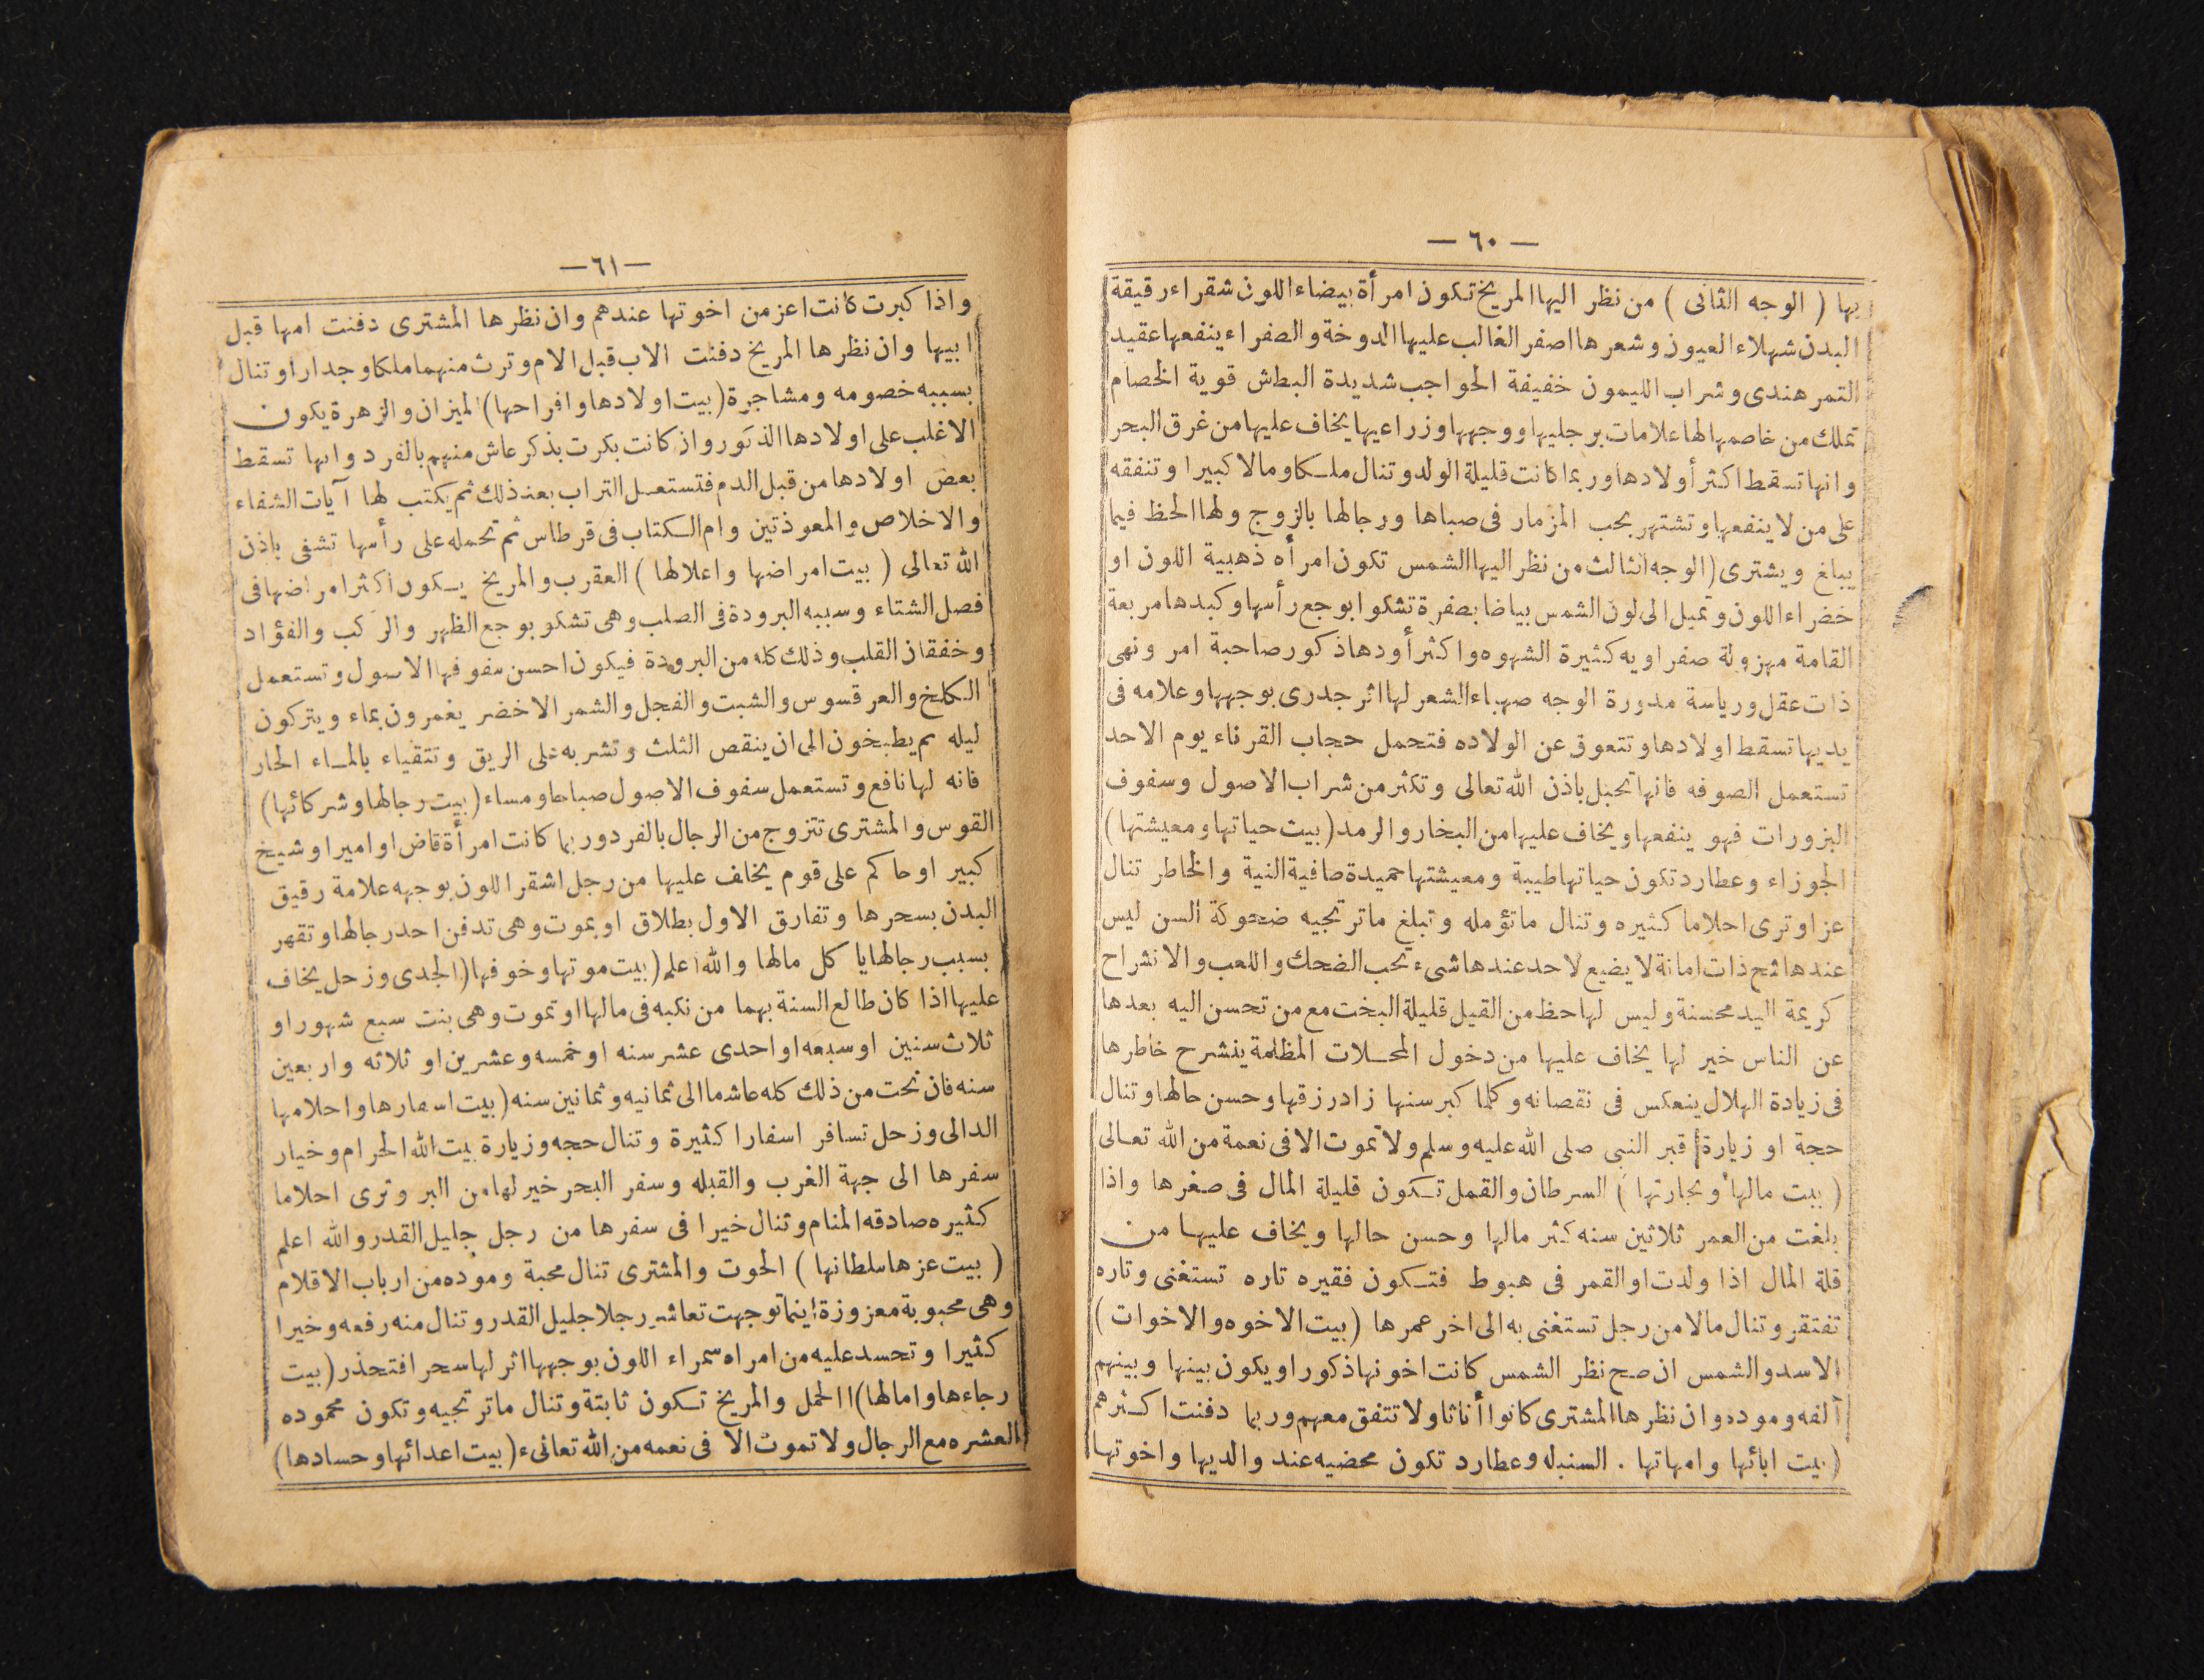 — ٦٠ —
بها ( الوجه الثانى ) من نظر اليها المريخ تكون امرأة بيضاء اللون شقراء رقيقة
البدن شهلاء العيون وشعرها اصفر الغالب عليها الدوخة والصفراء ينفعها عقيد
التمر هندى وشراب الليمون خفيفة الحواجب شديدة البطش قوية الخصام
تملك من خاصمها لها علامات برجليها ووجهها وزراعيها يخاف عليها من غرق البحر
وانها تسقط اكثر أولادها وربما كانت قليلة الولد وتنال ملكا ومالا كبيرا وتنفقه
على من لا ينفعها وتشتهر بحب المزمار فى صباها ورجالها بالزوج ولها الحظ فيما
يباغ ويشترى (الوجه الثالث من نظر اليها الشمس تكون امرأه ذهبية اللون او
خضراء اللون وتميل الى لون الشمس بياضا بصفرة تشكوا بوجع رأسها وكبدها مربعة
القامة مهزولة صفراويه كثيرة الشهوه واكثر أودها ذكور صاحبة امر ونهى
ذات عقل ورياسة مدورة الوجه صهباء الشعر لها اثر جدرى بوجهها وعلامه فى
يديها تسقط اولادها وتتعوق عن الولاده فتحمل حجاب القرناء يوم الاحد
تستعمل الصوفه فانها تحبل باذن الله تعالى وتكثر من شراب الاصول وسفوف
البزورات فهو ينفعها ويخاف عليها من البخار والرمد (بيت حياتها ومعيشتها)
الجوزاء وعطارد تكون حياتها طيبة ومعيشتها حميدة صافية النية والخاطر تنال
عزا وترى احلاما كثيره وتنال ما تؤمله وتبلغ ما ترتجيه ضحوكة السن ليس
عندها شح ذات امانة لا يضيع لاحد عندها شىء تحب الضحك واللعب والانشراح
كريمة اليد محسنة وليس لها حظ من القيل قليلة البخت مع من تحسن اليه بعدها
عن الناس خير لها يخاف عليها من دخول المحلات المظلمة ينشرح خاطرها
فى زيادة الهلال ينعكس فى نقصانه وكلما كبر سنها زاد رزقها وحسن حالها وتنال
حجة او زيارة قبر النبى صلى الله عليه وسلم ولا تموت الا فى نعمة من الله تعالى
( بيت مالها وتجارتها ) السرطان والقمل تكون قليلة المال فى صغرها واذا
بلغت من العمر ثلاثين سنه كثر مالها وحسن حالها ويخاف عليها من
قلة المال اذا ولدت او القمر فى هبوط فتكون فقيره تاره تستغنى وتاره
تفتقر وتنال مالا من رجل تستغنى به الى اخر عمرها (بيت الاخوه والاخوات)
الاسد والشمس ان صح نظر الشمس كانت اخوتها ذكورا ويكون بينها وبينهم
آلفه وموده وان نظرها المشترى كانوا أناثا ولا تتفق معهم وربما دفنت اكثرهم
(بيت ابائها وامهاتها . السنبله وعطارد تكون محضيه عند والديها واخوتها
—٦١—
واذا كبرت كانت اعز من اخوتها عندهم وان نظرها المشترى دفنت امها قبل
ابيها وان نظرها المريخ دفنت الاب قبل الام وترث منهما ملكا وجدارا وتنال
بسببه خصومه ومشاجرة (بيت اولادها وافراحها) الميزان والزهرة يكون
الاغلب على اولادها الذكور واذ كانت بكرت بذكر عاش منهم بالفرد وانها تسقط
بعض اولادها من قبل الدم فتستعمل التراب بعد ذلك ثم يكتب لها آيات الشفاء
والاخلاص والمعوذتين وام الكتاب فى قرطاس ثم تحمله على رأسها تشفى باذن
الله تعالى ( بيت امراضها واعلالها ) العقرب والمريخ يكون اكثر امراضها فى
فصل الشتاء وسببه البرودة فى الصلب وهى تشكو بوجع الظهر والركب والفؤاد
وخفقان القلب وذلك كله من البرودة فيكون احسن سفوفها الاسول وتستعمل
الكلخ والعرقسوس والشبت والفجل والشمر الاخضر يغمرون بماء ويتركون
ليله ثم يطبخون الى ان ينقص الثلث وتشربه على الريق وتتقياء بالماء الحار
فانه لها نافع وتستعمل سفوف الاصول صباحا ومساء (بيت رجالها وشركائها)
القوس والمشترى تتزوج من الرجال بالفرد وربما كانت امرأة قاض او امير او شيخ
كبير او حاكم على قوم يخاف عليها من رجل اشقر اللون بوجهه علامة رقيق
البدن بسحرها وتفارق الاول بطلاق او بموت وهى تدفن احد رجالها وتقهر
بسبب رجالها يا كل مالها والله اعلم (بيت موتها وخوفها) الجدى وزحل يخاف
عليها اذا كان طالع السنة بهما من نكبه فى مالها او تموت وهى بنت سبع شهور او
ثلاث سنين او سبعه او احدى عشر سنه او خمسه وعشرين او ثلاثه واربعين
سنه فان نحت من ذلك كله عاشما الى ثمانيه وثمانين سنه (بيت اسفارها واحلامها
الدالى وزحل تسافر اسفارا كثيرة وتنال حجه وزيارة بيت الله الحرام وخيار
سفرها الى جهة الغرب والقبله وسفر البحر خير لها من البر وترى احلاما
كثيره صادقه المنام وتنال خيرا فى سفرها من رجل جليل القدر والله اعلم
( بيت عزها سلطانها ) الحوت والمشترى تنال محبة وموده من ارباب الاقلام
وهى محبوبة معزوزة اينما توجهت تعاشر رجلا جليل القدر وتنال منه رفعه وخيرا
كثيرا وتحسد عليه من امراه سمراء اللون بوجهها اثر لها سحر افتحذر (بيت
رجاءها وامالها) الحمل والمريخ تكون ثابتة وتنال ما ترتجيه وتكون محموده
العشره مع الرجال ولا تموت الا فى نعمه من الله تعالىء (بيت اعدائها وحسادها)